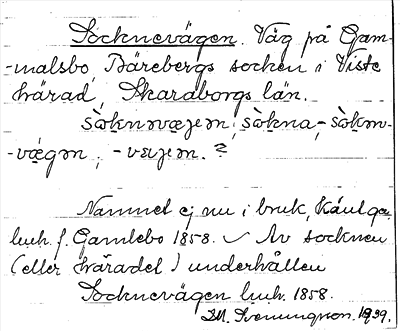 Socknevägen. Väg på Gam-
-malsbo, Bärebergs socken i Viste
härad, Skaraborgs län.
sòknvæjen, sòkna-, sòkn-
-vægen, -vejen. ?
Namnet ej nu i bruk,
luh. f. Gamlebo 1858. Av socknen
(eller häradet) underhållen
Socknevägen luh. 1858.
1939.